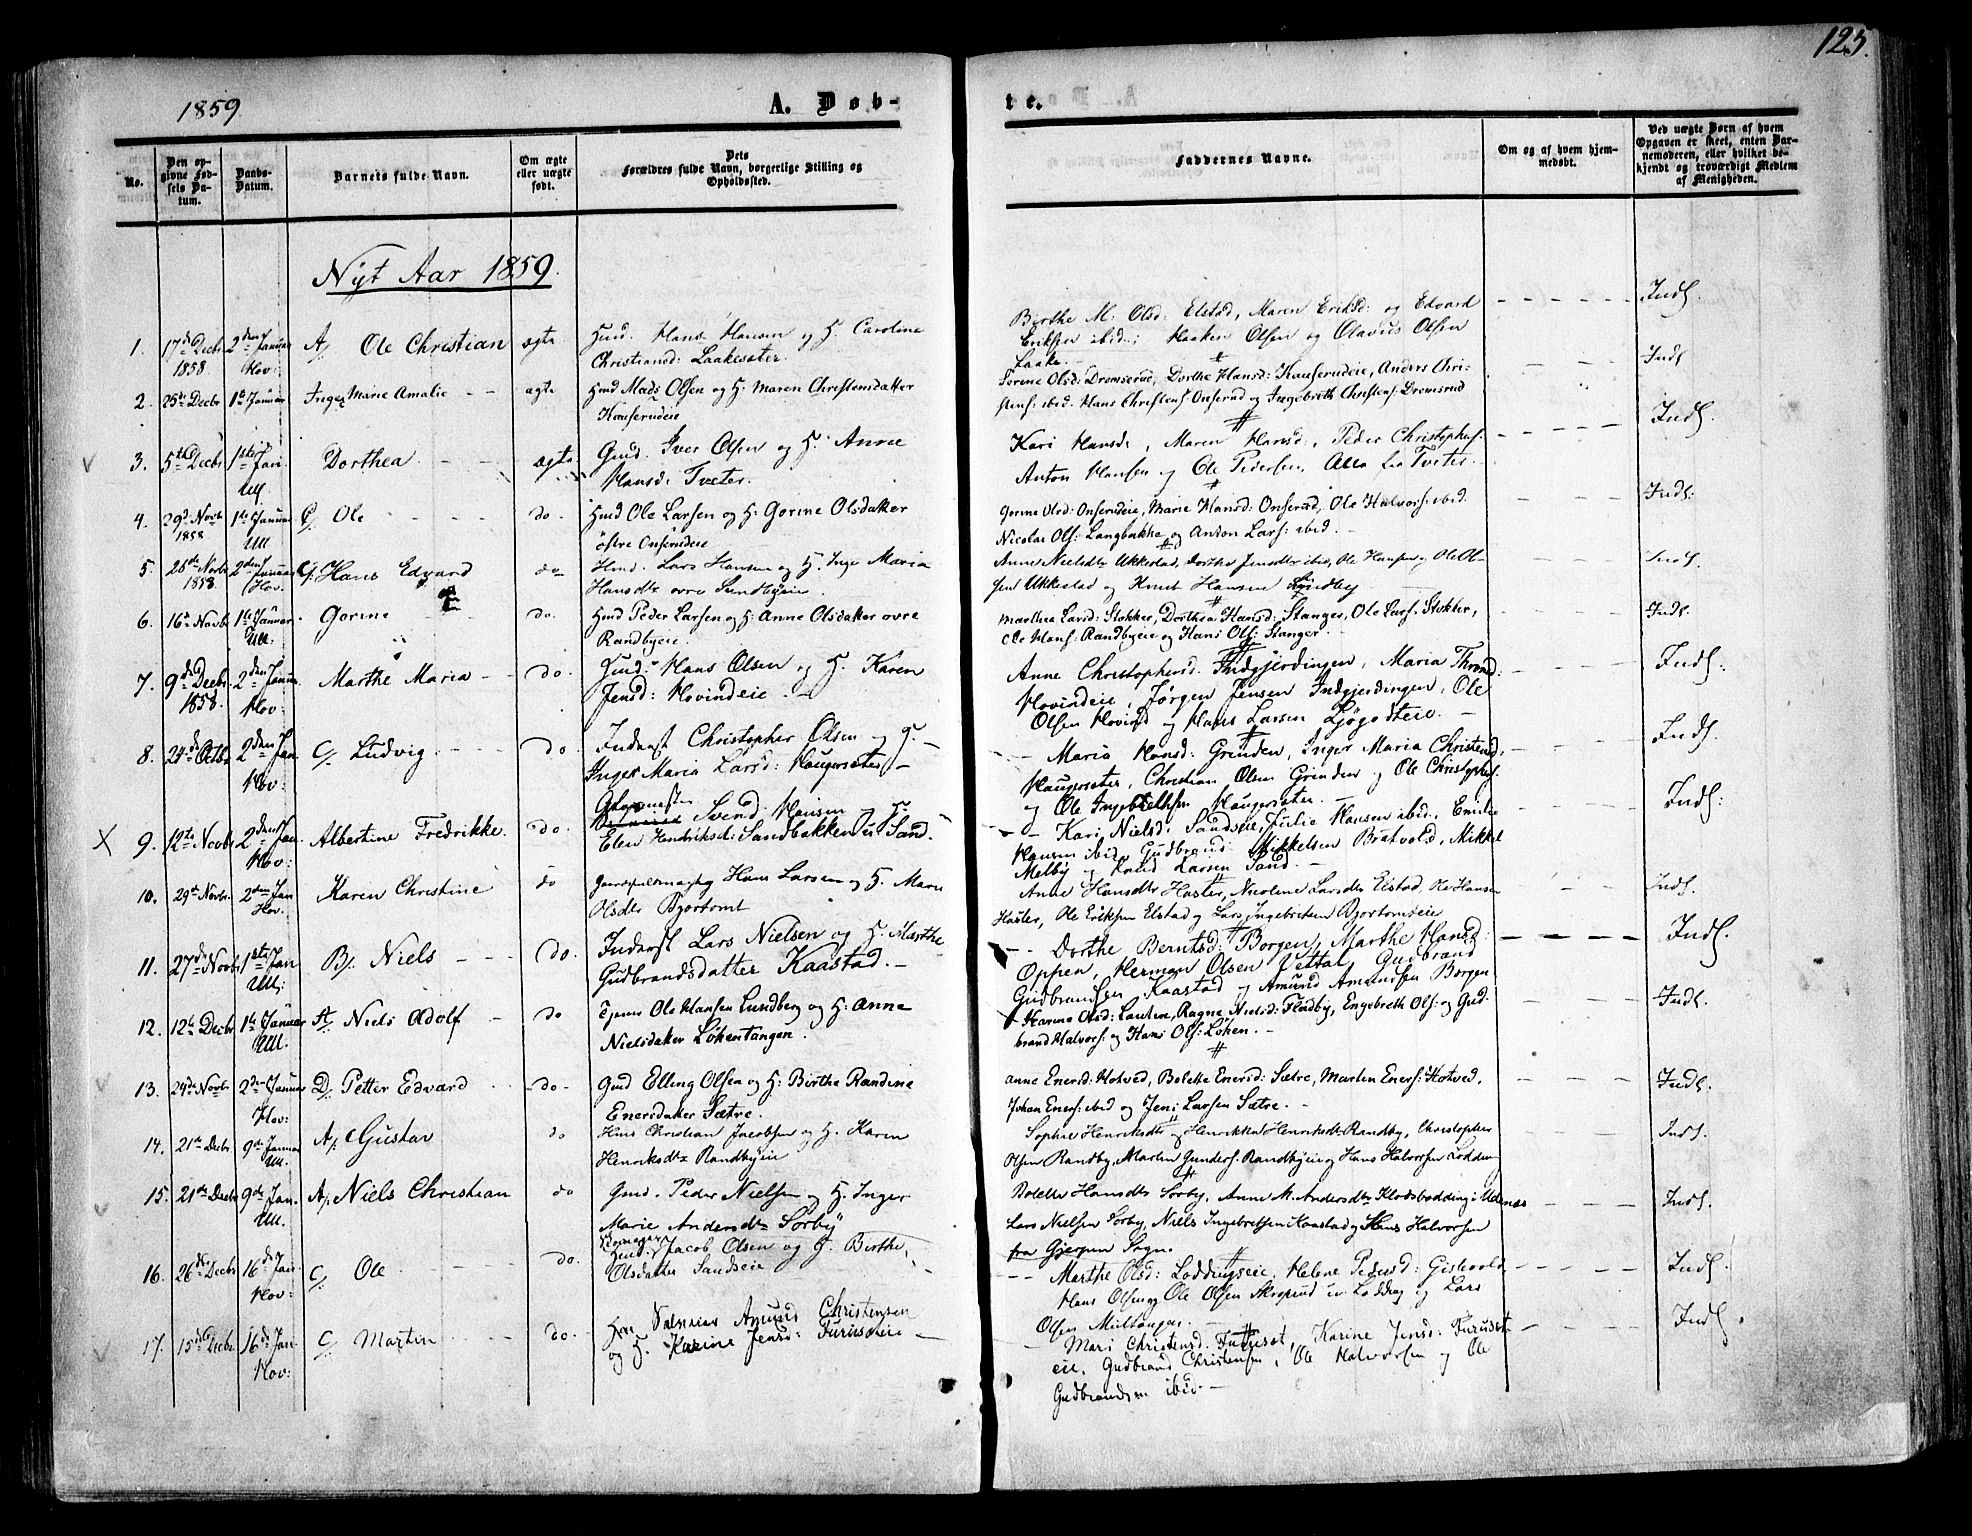 1859
A. Døb-
te.
123.
No.
Den op-
givne Fød-
sels Da-
tum.
Daabs-
Datum.
Barnets fulde Navn.
Om ægte
eller uægte
født.
Dets
Forældres fulde Navn, borgerlige Stilling og
Opholdssted.
Faddernes Navne.
Om og af hvem hjem-
medøbt.
Ved uægte Børn af hvem
Opgaven er skeet, enten Bar-
nemoderen, eller hvilket be-
kjendt og troværdigt Medlem
af Menigheden.
Nyt Aar 1859.
1. 17de Decbr 1858 2den Januar Hov: A/ Ole Christian ægte
Huusd. Hans Hansen og H. Caroline
Christiansd: Laakesæter.
Birthe M. Olsd: Elstad, Maren Eriksd: og Edvard
Eriksen ibid:, Haaken Olsen og Olavus Olsen
Laake.
Indf.
2. 25de Decbr 1ste Januar Inger Marie Amalie ægte
Hmd Mads Olsen og H: Maren Christensdatter
Kauserudeie
Sørine Olsd: Dromserud, Dorthe Hansd: Kauserudeie, Anders Chri-
stens: ibid. Hans Christens: Onserud og Ingebreth Christens: Dromsrud
Indf
3. 5te Decbr 1ste Jan. Ull. Dorthea ægte
Gmd. Iver Olsen og H. Anne
Hansd: Tveter.
Kari Hansd:, Maren Hansd:, Peder Christophs.
Anton Hansen og Ole Pedersen, Alle fra Tveter.
Indf.
4. 29de Novb. 1858 1ste Januar Ull. C/. Ole do.
Hmd Ole Larsen og H: Gorine Olsdatter
østre Onserudeie
Gorine Olsd: Onserudeie, Marie Hansd: Onserud, Ole Halvors: ibid.
Nicolai Ols: Langbakke og Anton Lars: ibid.
Indf:
5. 26de Novbr 1858 2den Januar Hov. C/. Hans Edvard do
Hmd. Lars Hansen og H. Inge Maria
Hansdtr øvre Sundbyeie.
Anne Nielsdtr Ukkestad, Dorthe Jensdtr ibid, Ole Hansen og Ole Ol-
sen Ukkestad og Knut Hansen Sundby
Indf.
6. 16de Novbr 1ste Januar Ull. Gorine do.
Hmd Peder Larsen og H: Anne Olsdatter øvre
Randbyeie.
Marthea Larsd: Stokker, Dorthea Hansd: Stanger, Ole Lars: Stokker,
Ole Hans: Randbyeie og Hans Ols: Stanger.
Indf.
7. 9de Decbr 1858. 2den Januar Hov: Marthe Maria do.
Huusd. Hans Olsen og H. Karen
Jensd: Hovindeie.
Anne Christophersd. Indgjerdingen, Maria Thrond:
Hovindeie, Jørgen Jensen Indgjerdingen, Ole
Olsen Hovind og Hans Larsen Ljøgodteie.
Indf.
8. 24de Octbr 2den Jan Hov: C/. Ludvig do
Inderst Christopher Olsen og H.
Inger Maria Larsd: Haugersæter
Maria Hansd: Grinden, Inger Maria Christensd:
Haugersæter, Christian Olsen Grinden og Ole Christophs.
og Ole Ingebrethsen Haugersæter.
Indf.
9. 12te Novbr 2den Jan. Hov: Albertine Fredrikke. do.
Svend Hansen og H.
Elen Hendriksd: Sandbakken u/ Sand.
Kari Nielsd: Sandseie, Julia Hansen ibid., Emilie
Hansen ibid, Gudbrand Mikkelsen Bratvold, Mikkel
Melby og Knud Larsen Sand.
Indf:
10. 29de Novbr. 2den Jan Hov. Karen Christine do
Hans Larsen og H. Mari
Olsdtr Bjortomt
Anne Hansdtr Haster, Nicoline Larsdtr Elstad, Ole Hansen
Haster, Ole Eriksen Elstad og Lars Ingebretsen Bjortomteie
Indf.
11. 27de Novbr 1ste Jan Ull: B/. Niels do.
Inderst Lars Nielsen og H. Marthe
Gudbrandsdatter Kaastad.
Dorthe Berntsd: Borgen, Marthe Hansd:
Oppen, Herman Olsen Vettal, Gudbrand
Gudbrandsen Kaastad og Amund Amundsen Borgen
Indf.
12. 12te Decbr 1ste Januar Ull. A/. Niels Adolf do
Tjenr Ole Hansen Lundberg og H: Anne
Nielsdatter Løkentangen.
Karine Olsd: Løken, Ragne Nielsd: Fladby, Engebreth Ols: og Gud-
brand Halvors: og Hans Ols: Løken.
Indf.
13. 24de Novbr 2den Januar Hov: D/. Petter Edvard do
Gmd Elling Olsen og H: Birthe Randine
Enersdatter Sætre.
Anne Enersd: Hotved, Bolette Enersd: Sætre, Marten Eners: Hotved,
Johan Eners: ibid og Jens Larsen Sætre.
Indf.
14. 21de Decbr 9de Januar Ull. A/. Gustav do
Hmd Christian Jacobsen og H. Karen
Henriksdtr Randbyeie
Sophie Henriksdtr og Henrikka Henriksdtr Randby, Christopher
Olsen Randby, Martin Gunders: Randbyeie og Hans Halvorsen Lodden
Indf.
15. 21de Decbr 9de Jan. Ull. A/. Niels Christian do
Gmd. Peder Nielsen og H. Inger
Marie Andersdtr Sørby
Bolette Hansdtr Sørby, Anne M. Andersdtr Klodsbødding i Udenæs
Lars Nielsen Sørby, Niels Ingebretsen Kaastad og Hans Halvorsen
fra Gjerpen Sogn.
Indf.
16. 26de Decbr 16de Jan Hov: C/. Ole do.
Jacob Olsen og H. Birthe
Olsdatter Sandseie
Marthe Olsd: Loddingseie, Helene Pedersd: Gislevold
Hans Olsen og Ole Olsen Skoprud u. Lodding og Lars
Olsen Meltangar.
Indf.
17. 15de Decbr 16de Jan Hov: C/. Martin do.
Amund Christensen
og H. Karine Jensd: Furuseteie
Mari Christensd. Furuset, Karine Jensd: Furuset-
eie, Gudbrand Christensen, Ole Halvorsen og Ole
Gudbrandsen ibid.
Indf.